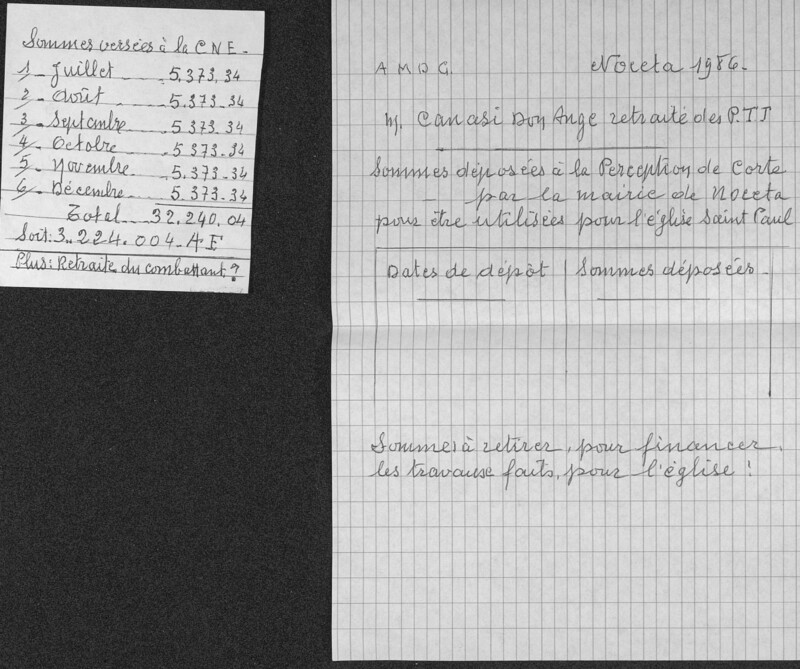 Sommes versées à la C N E -
1 - Juillet 5.373,34
2 - Août 5.373-34
3 - Septembre 5.373-34
4 - Octobre 5 373-34
5 - Novembre 5.373-34
6 - Décembre 5.373-34
Total 32.240.04
Soit: 3.224.004 - AF
Plus: Retraite du combattant ?
A M D G. Noceta 1986.
M. Canasi Don Ange retraité des P.T.T
Sommes déposées à la Perception de Corte
par la mairie de Noceta
pour être utilisées pour l'église Saint Paul
Dates de dépôt | Sommes déposées -
Sommes à retirer, pour financer,
les travause faits, pour l'église !